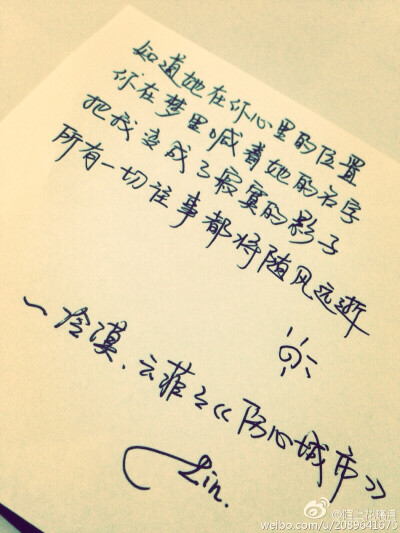 知道她在你心里的位置
你在梦里喊着她的名字
把我变成了寂寞的影子
所有一切往事都将随风远逝
~冷漠、云菲菲《伤心城市》
Lin.
weibo.com/u/2089641675